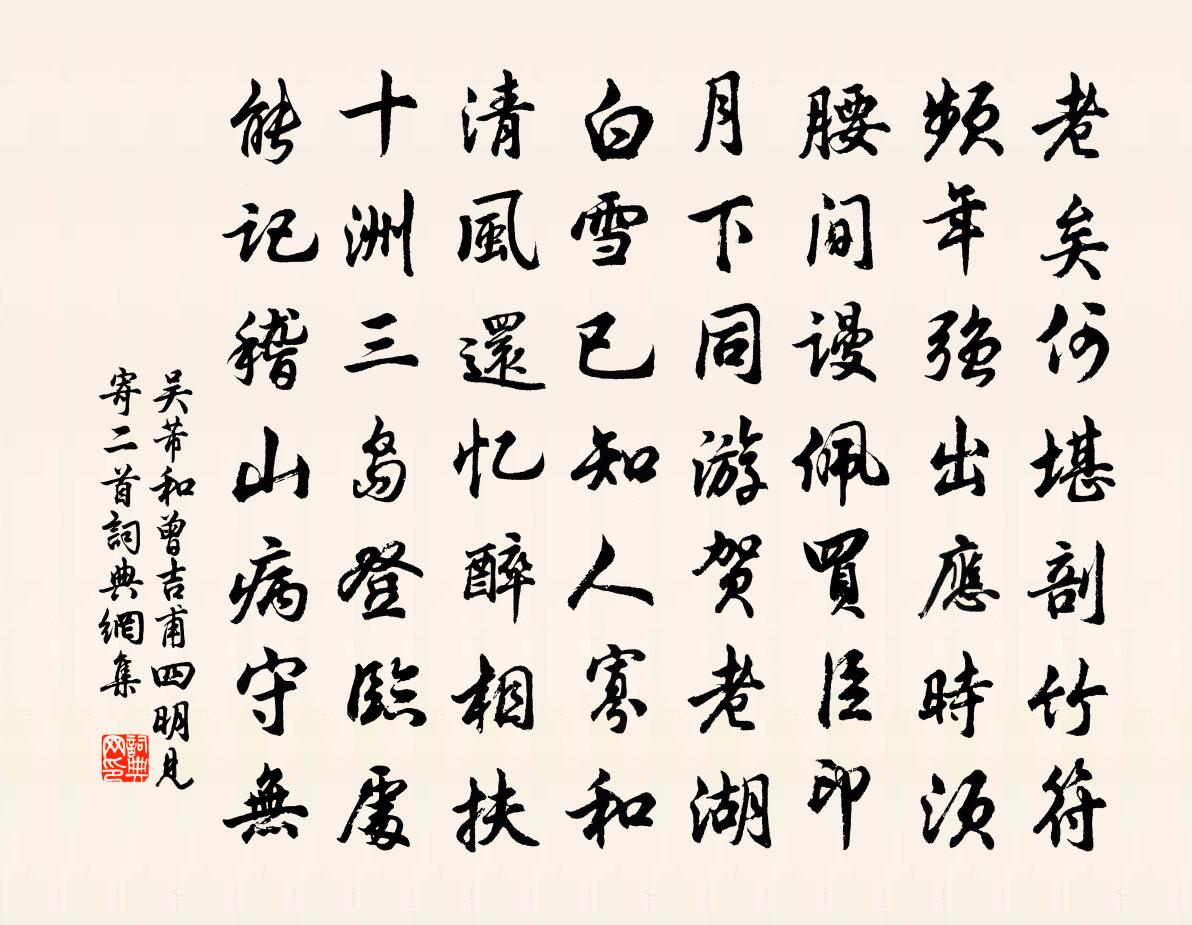 老矣何堪剖竹符
頻年強出應時須
腰間謾佩買臣印
月下同游賀老湖
白雪已知人寡和
清風還忆醉相扶
十洲三島登臨處
能記稽山病守無
吴芾和曾吉甫四明見
寄二首詞典網集
詞典网印